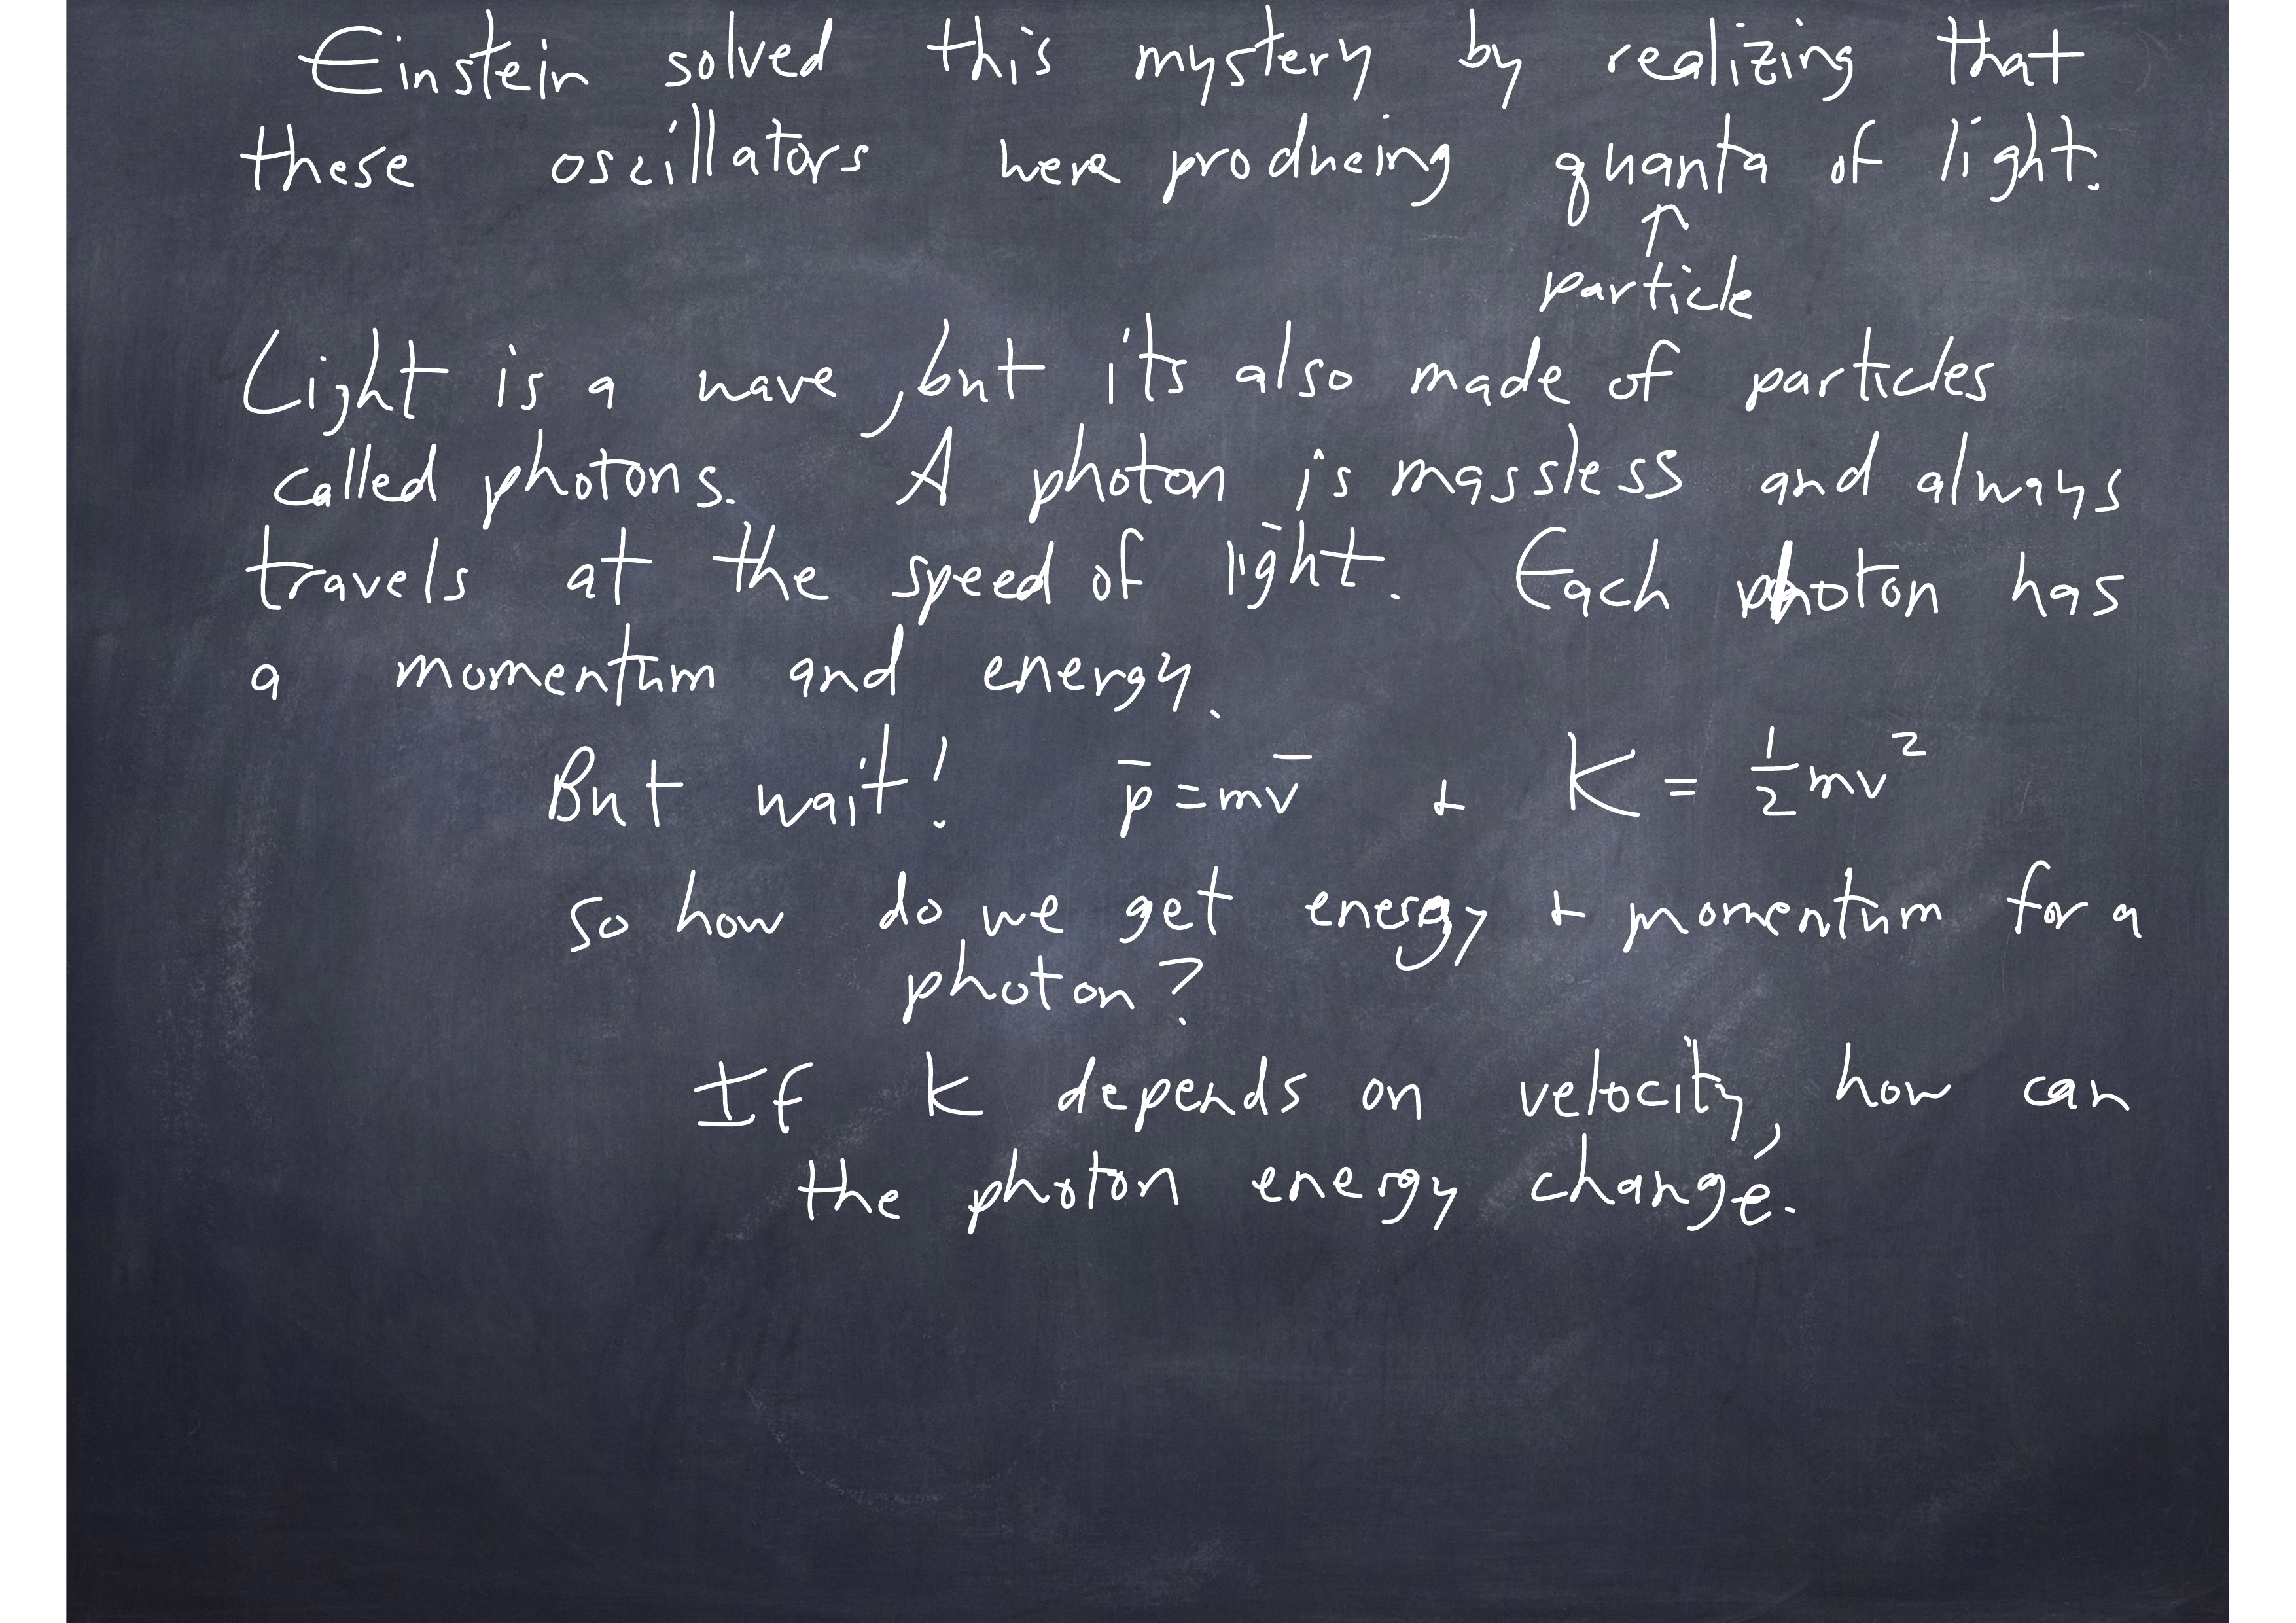 Einstein solved this mystery by realizing that
these oscillators were producing quanta of light.
↑
particle
Light is a wave, but it's also made of particles
called photons. A photon is massless and always
travels at the speed of light. Each photon has
a momentum and energy.
But wait! p̄ = mv̄ + K = 1/2 mv²
so how do we get energy + momentum for a
photon?
If K depends on velocity, how can
the photon energy change.